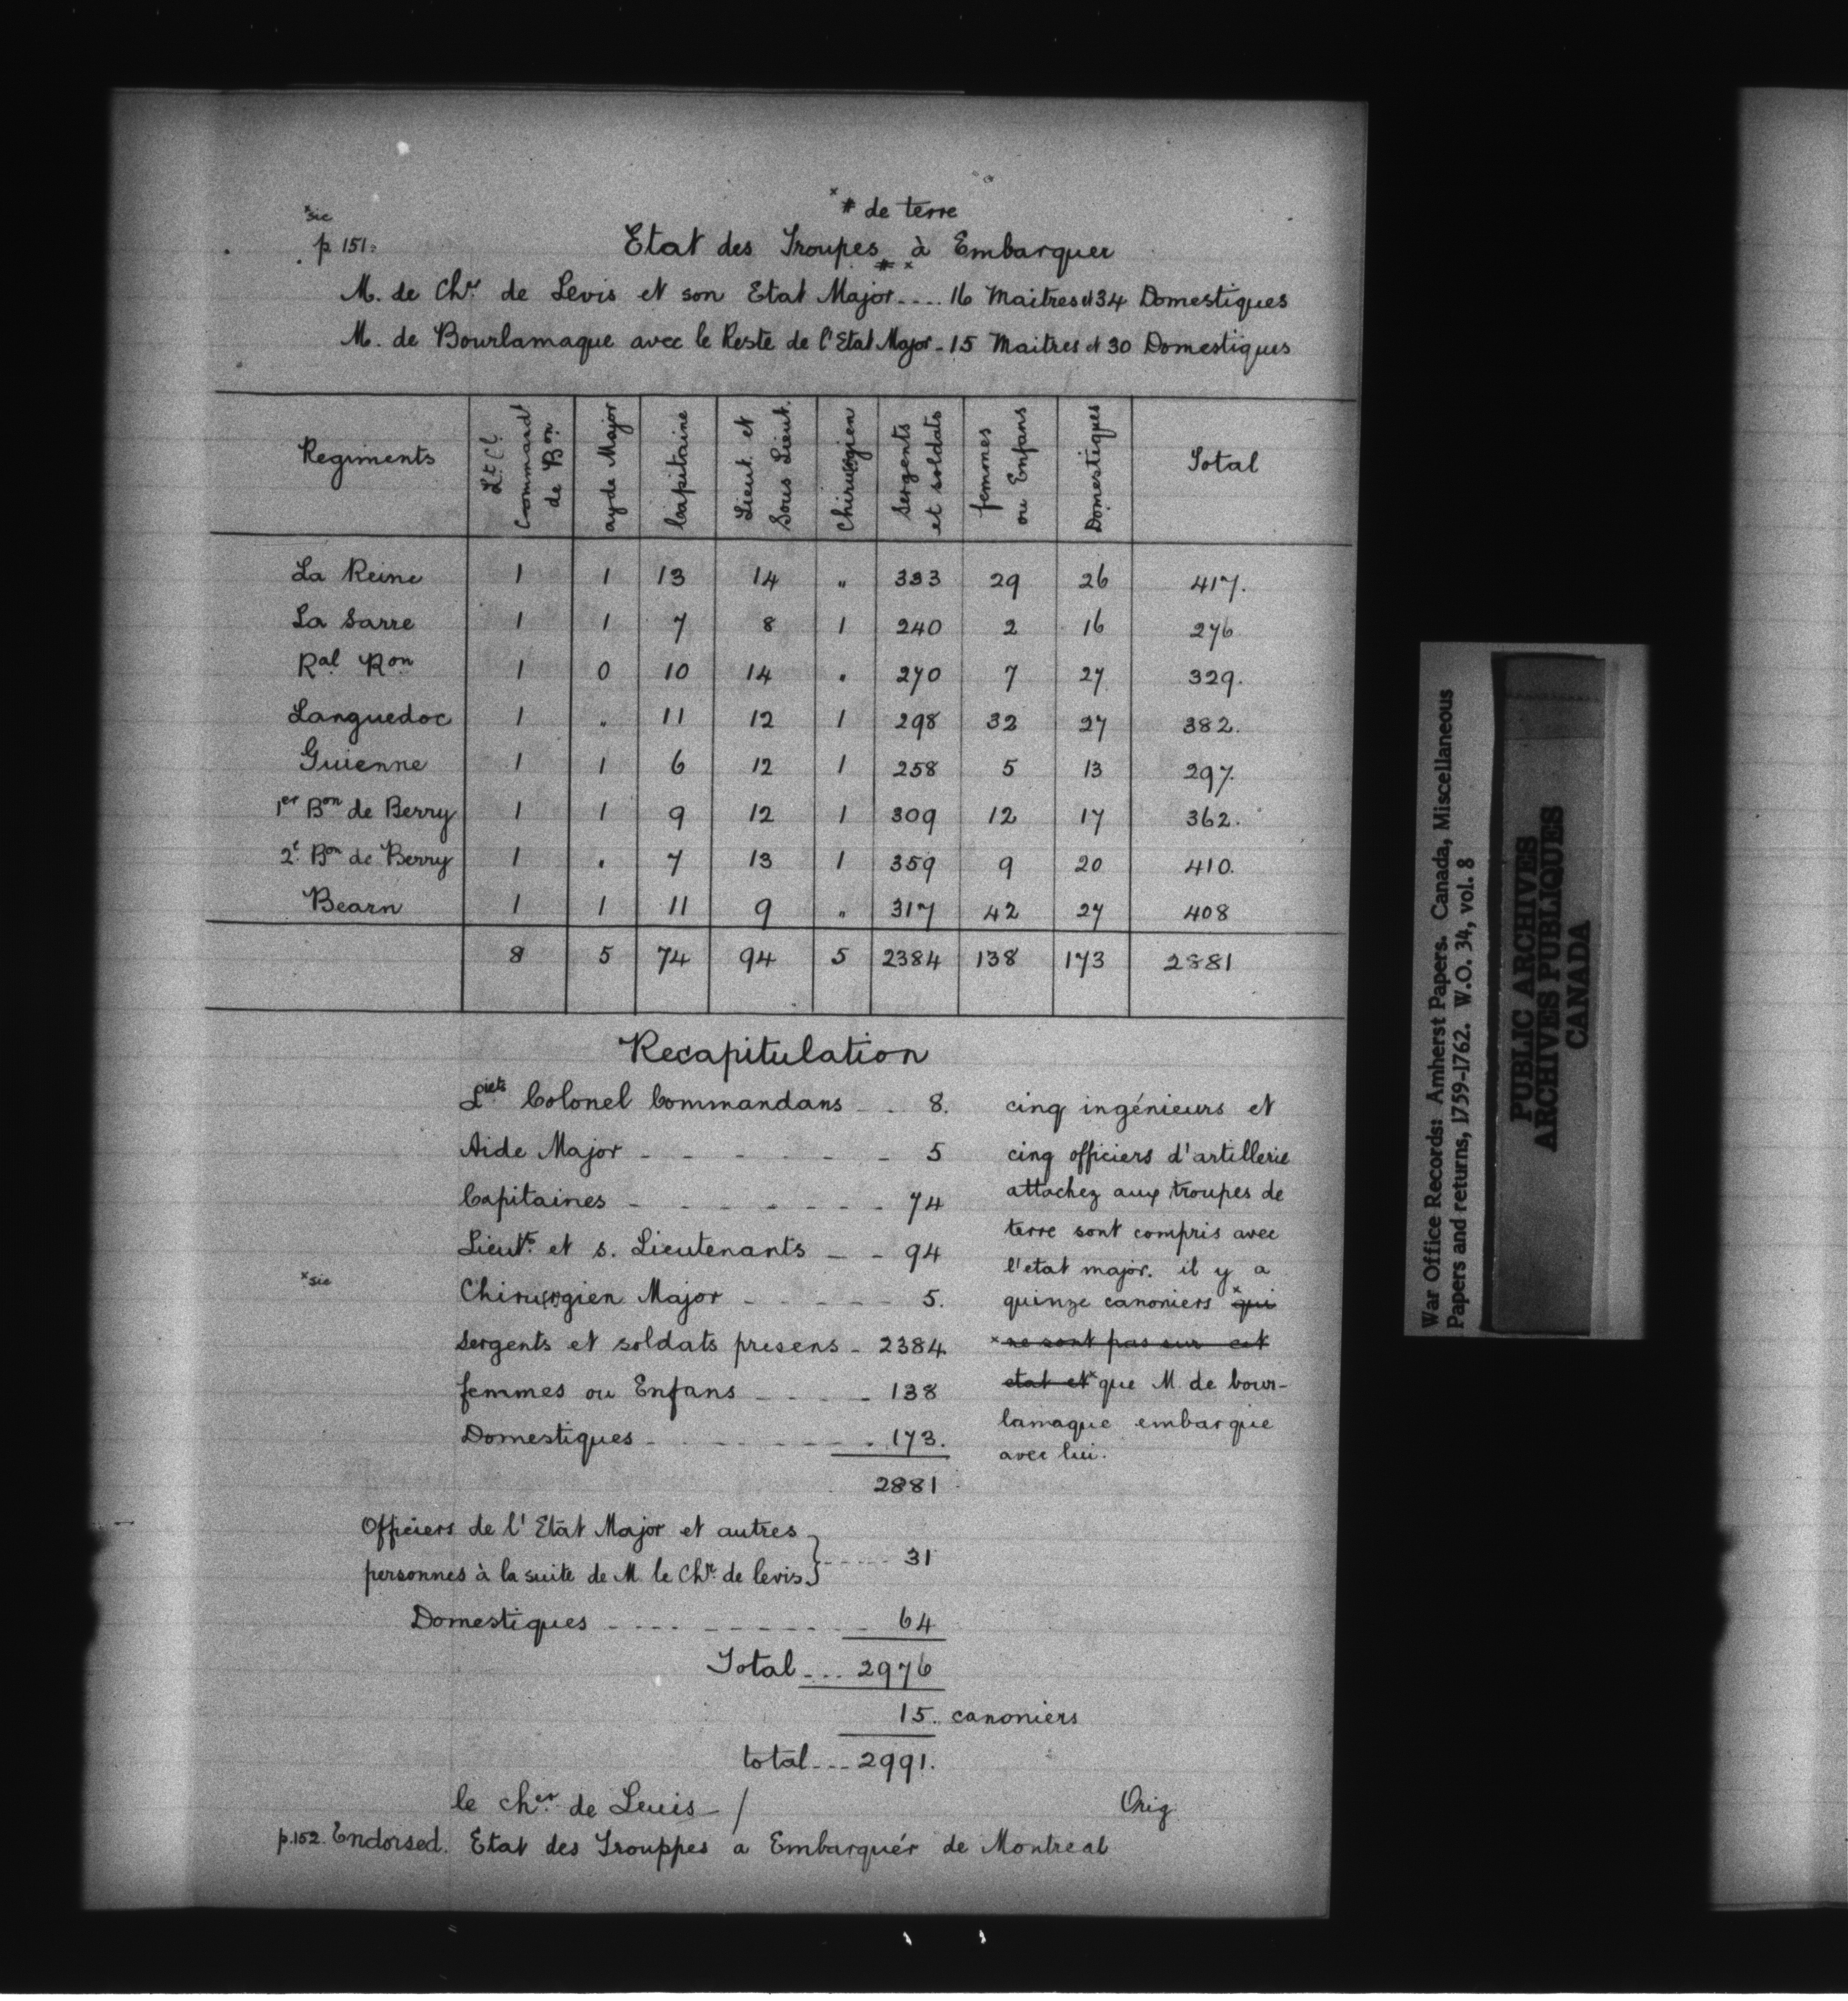 * # de terre
*sic
p. 151. Etat des Troupes # * à Embarquer
M. de Chr. de Levis et son Etat Major .... 16 Maitres et 34 Domestiques
M. de Bourlamaque avec le Reste de l'Etat Major - 15 Maitres et 30 Domestiques
Regiments | Lt. Cl. Commandt de Bon. | ayde Major | Capitaine | Lieut. et Sous Lieut. | Chirurgien | Sergents et soldats | femmes ou Enfans | Domestiques | Total
La Reine | 1 | 1 | 13 | 14 | " | 333 | 29 | 26 | 417.
La Sarre | 1 | 1 | 7 | 8 | 1 | 240 | 2 | 16 | 276
Ral Ron | 1 | 0 | 10 | 14 | . | 270 | 7 | 27 | 329.
Languedoc | 1 | . | 11 | 12 | 1 | 298 | 32 | 27 | 382.
Guienne | 1 | 1 | 6 | 12 | 1 | 258 | 5 | 13 | 297.
1er Bon de Berry | 1 | 1 | 9 | 12 | 1 | 309 | 12 | 17 | 362.
2e. Bon de Berry | 1 | . | 7 | 13 | 1 | 359 | 9 | 20 | 410.
Bearn | 1 | 1 | 11 | 9 | " | 317 | 42 | 27 | 408
8 | 5 | 74 | 94 | 5 | 2384 | 138 | 173 | 2881
Recapitulation
Liets Colonel Commandans - . 8.
Aide Major - - - - - - - 5
Capitaines - - - - - - - 74
Lieuts. et s. Lieutenants - - 94
*sic
Chirurgien Major - - - - - 5.
Sergents et soldats presens - 2384
femmes ou Enfans - - - - 138
Domestiques - - - - - - . 173.
2881
cinq ingénieurs et
cinq officiers d'artillerie
attachez aux troupes de
terre sont compris avec
l'etat major. il y a
quinze canoniers *qui
*ne sont pas sur cet
etat et* que M. de bour-
lamaque embarque
avec lui.
Officiers de l'Etat Major et autres
personnes à la suite de M. le Chr. de levis } ----- 31
Domestiques - - - - - - - - - 64
Total ... 2976
15. canoniers
total ... 2991.
le cher. de Levis - / Orig.
p.152. Endorsed. Etat des Trouppes a Embarquér de Montreal
War Office Records: Amherst Papers. Canada, Miscellaneous
Papers and returns, 1759-1762. W.O. 34, vol. 8
PUBLIC ARCHIVES
ARCHIVES PUBLIQUES
CANADA